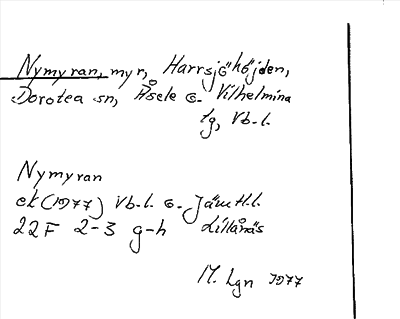 Nymyran, myr, Harrsjöhöjden,
Dorotea sn, Åsele o. Vilhelmina
tg, Vb. l.
Nymyran
ek (1977) Vb. l. o. Jämtl. l.
22F 2-3 g-h Lillånäs
M. Lgn 1977